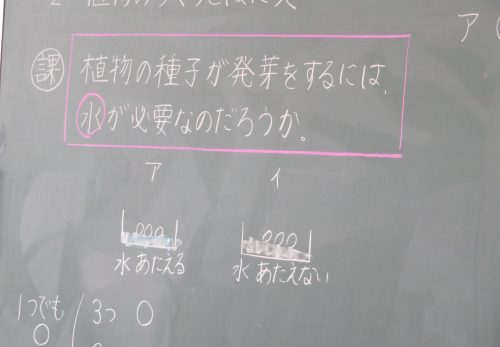 ア
課
植物の種子が発芽をするには、
水が必要なのだろうか。
ア イ
水 あたえる 水 あたえない
1つでも 3つ ○
○